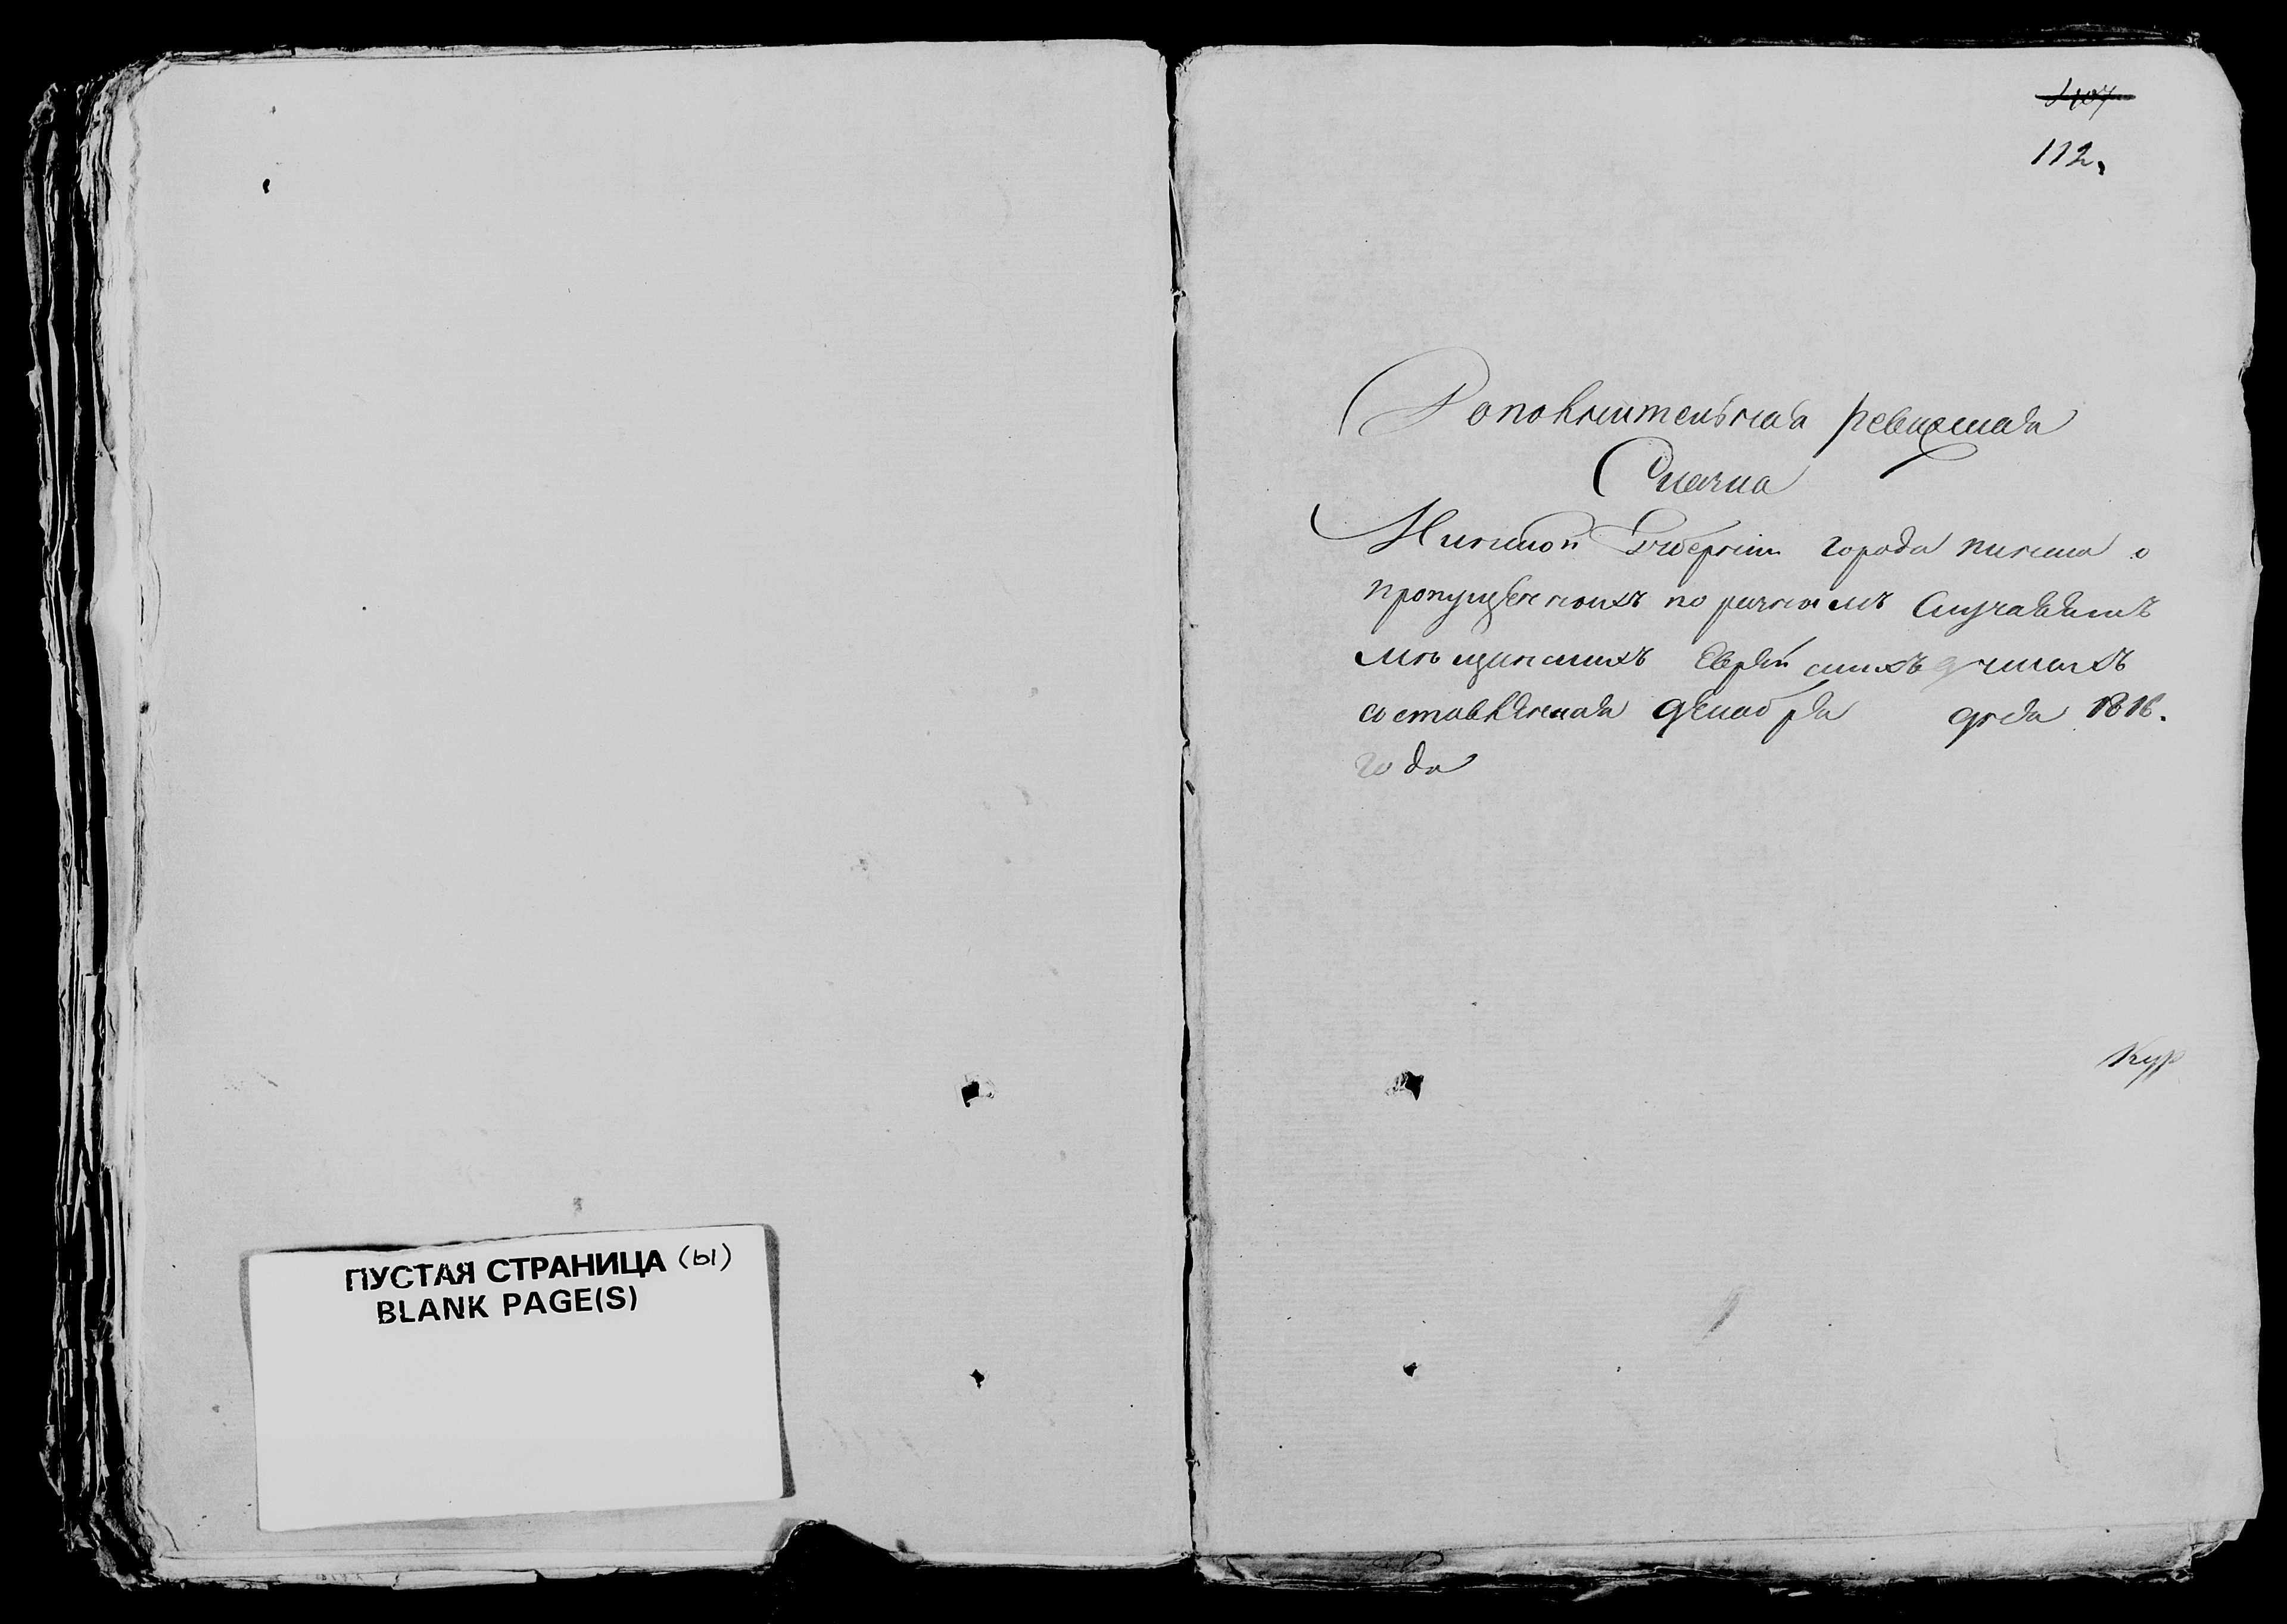 ПУСТАЯ СТРАНИЦА (ы)
BLANK PAGE(S)
112.
Дополнительная ревизская
Сказка
Минской Губернии города пинска о
пропущенныхъ по разнымъ Случаямъ
мѣщанскихъ Еврейскихъ душахъ
составленная декабря дня 1816.
года
Кур